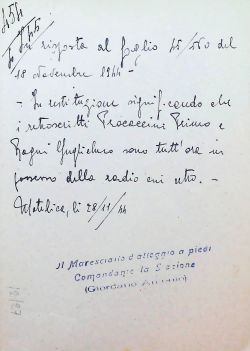 454
In risposta al foglio 45/550 del
18 novembre 1944 -
- In restituzione significando che
i retroscritti Procaccini Primo e
Ragni Guglielmo sono tutt'ora in
possesso della radio cui
Matelica, li 28/11/44
Il Maresciallo d'alloggio a piedi
Comandante la Sezione
(Giordano